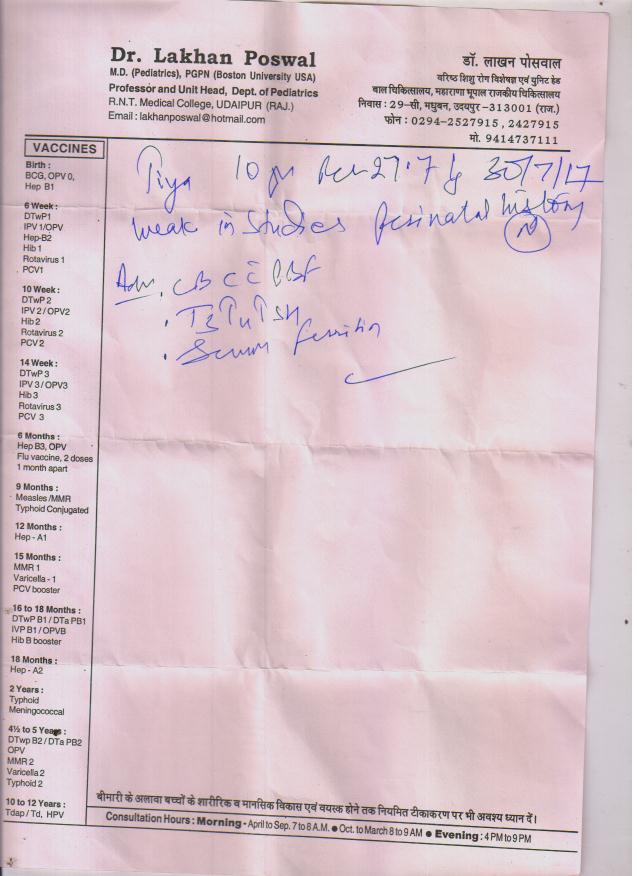 Dr. Lakhan Poswal
M.D. (Pediatrics), PGPN (Boston University USA)
Professor and Unit Head, Dept. of Pediatrics
R.N.T. Medical College, UDAIPUR (RAJ.)
Email : lakhanposwal@hotmail.com
डॉ. लाखन पोसवाल
वरिष्ठ शिशु रोग विशेषज्ञ एवं युनिट हेड
बाल चिकित्सालय, महाराणा भूपाल राजकीय चिकित्सालय
निवास : 29-सी, मधुबन, उदयपुर -313001 (राज.)
फोन : 0294-2527915 , 2427915
मो. 9414737111
VACCINES
Birth :
BCG, OPV 0,
Hep B1
6 Week :
DTwP1
IPV 1/OPV
Hep-B2
Hib 1
Rotavirus 1
PCV1
10 Week :
DTwP 2
IPV 2 / OPV2
Hib 2
Rotavirus 2
PCV 2
14 Week :
DTwP 3
IPV 3 / OPV3
Hib 3
Rotavirus 3
PCV 3
6 Months :
Hep B3, OPV
Flu vaccine, 2 doses
1 month apart
9 Months :
Measles /MMR
Typhoid Conjugated
12 Months :
Hep - A1
15 Months :
MMR 1
Varicella - 1
PCV booster
16 to 18 Months :
DTwP B1 / DTa PB1
IVP B1 / OPVB
Hib B booster
18 Months :
Hep - A2
2 Years :
Typhoid
Meningococcal
4½ to 5 Years :
DTwp B2 / DTa PB2
OPV
MMR 2
Varicella 2
Typhoid 2
10 to 12 Years :
Tdap / Td, HPV
Piya 10 27.7 kg 30/7/17
weak in studies perinatal history
N
Adv. CBC c̄ PBF
. T3 T4 TSH
. Serum ferritin
बीमारी के अलावा बच्चों के शारीरिक व मानसिक विकास एवं वयस्क होने तक नियमित टीकाकरण पर भी अवश्य ध्यान दें।
Consultation Hours : Morning - April to Sep. 7 to 8 A.M. ● Oct. to March 8 to 9 AM ● Evening : 4 PM to 9 PM